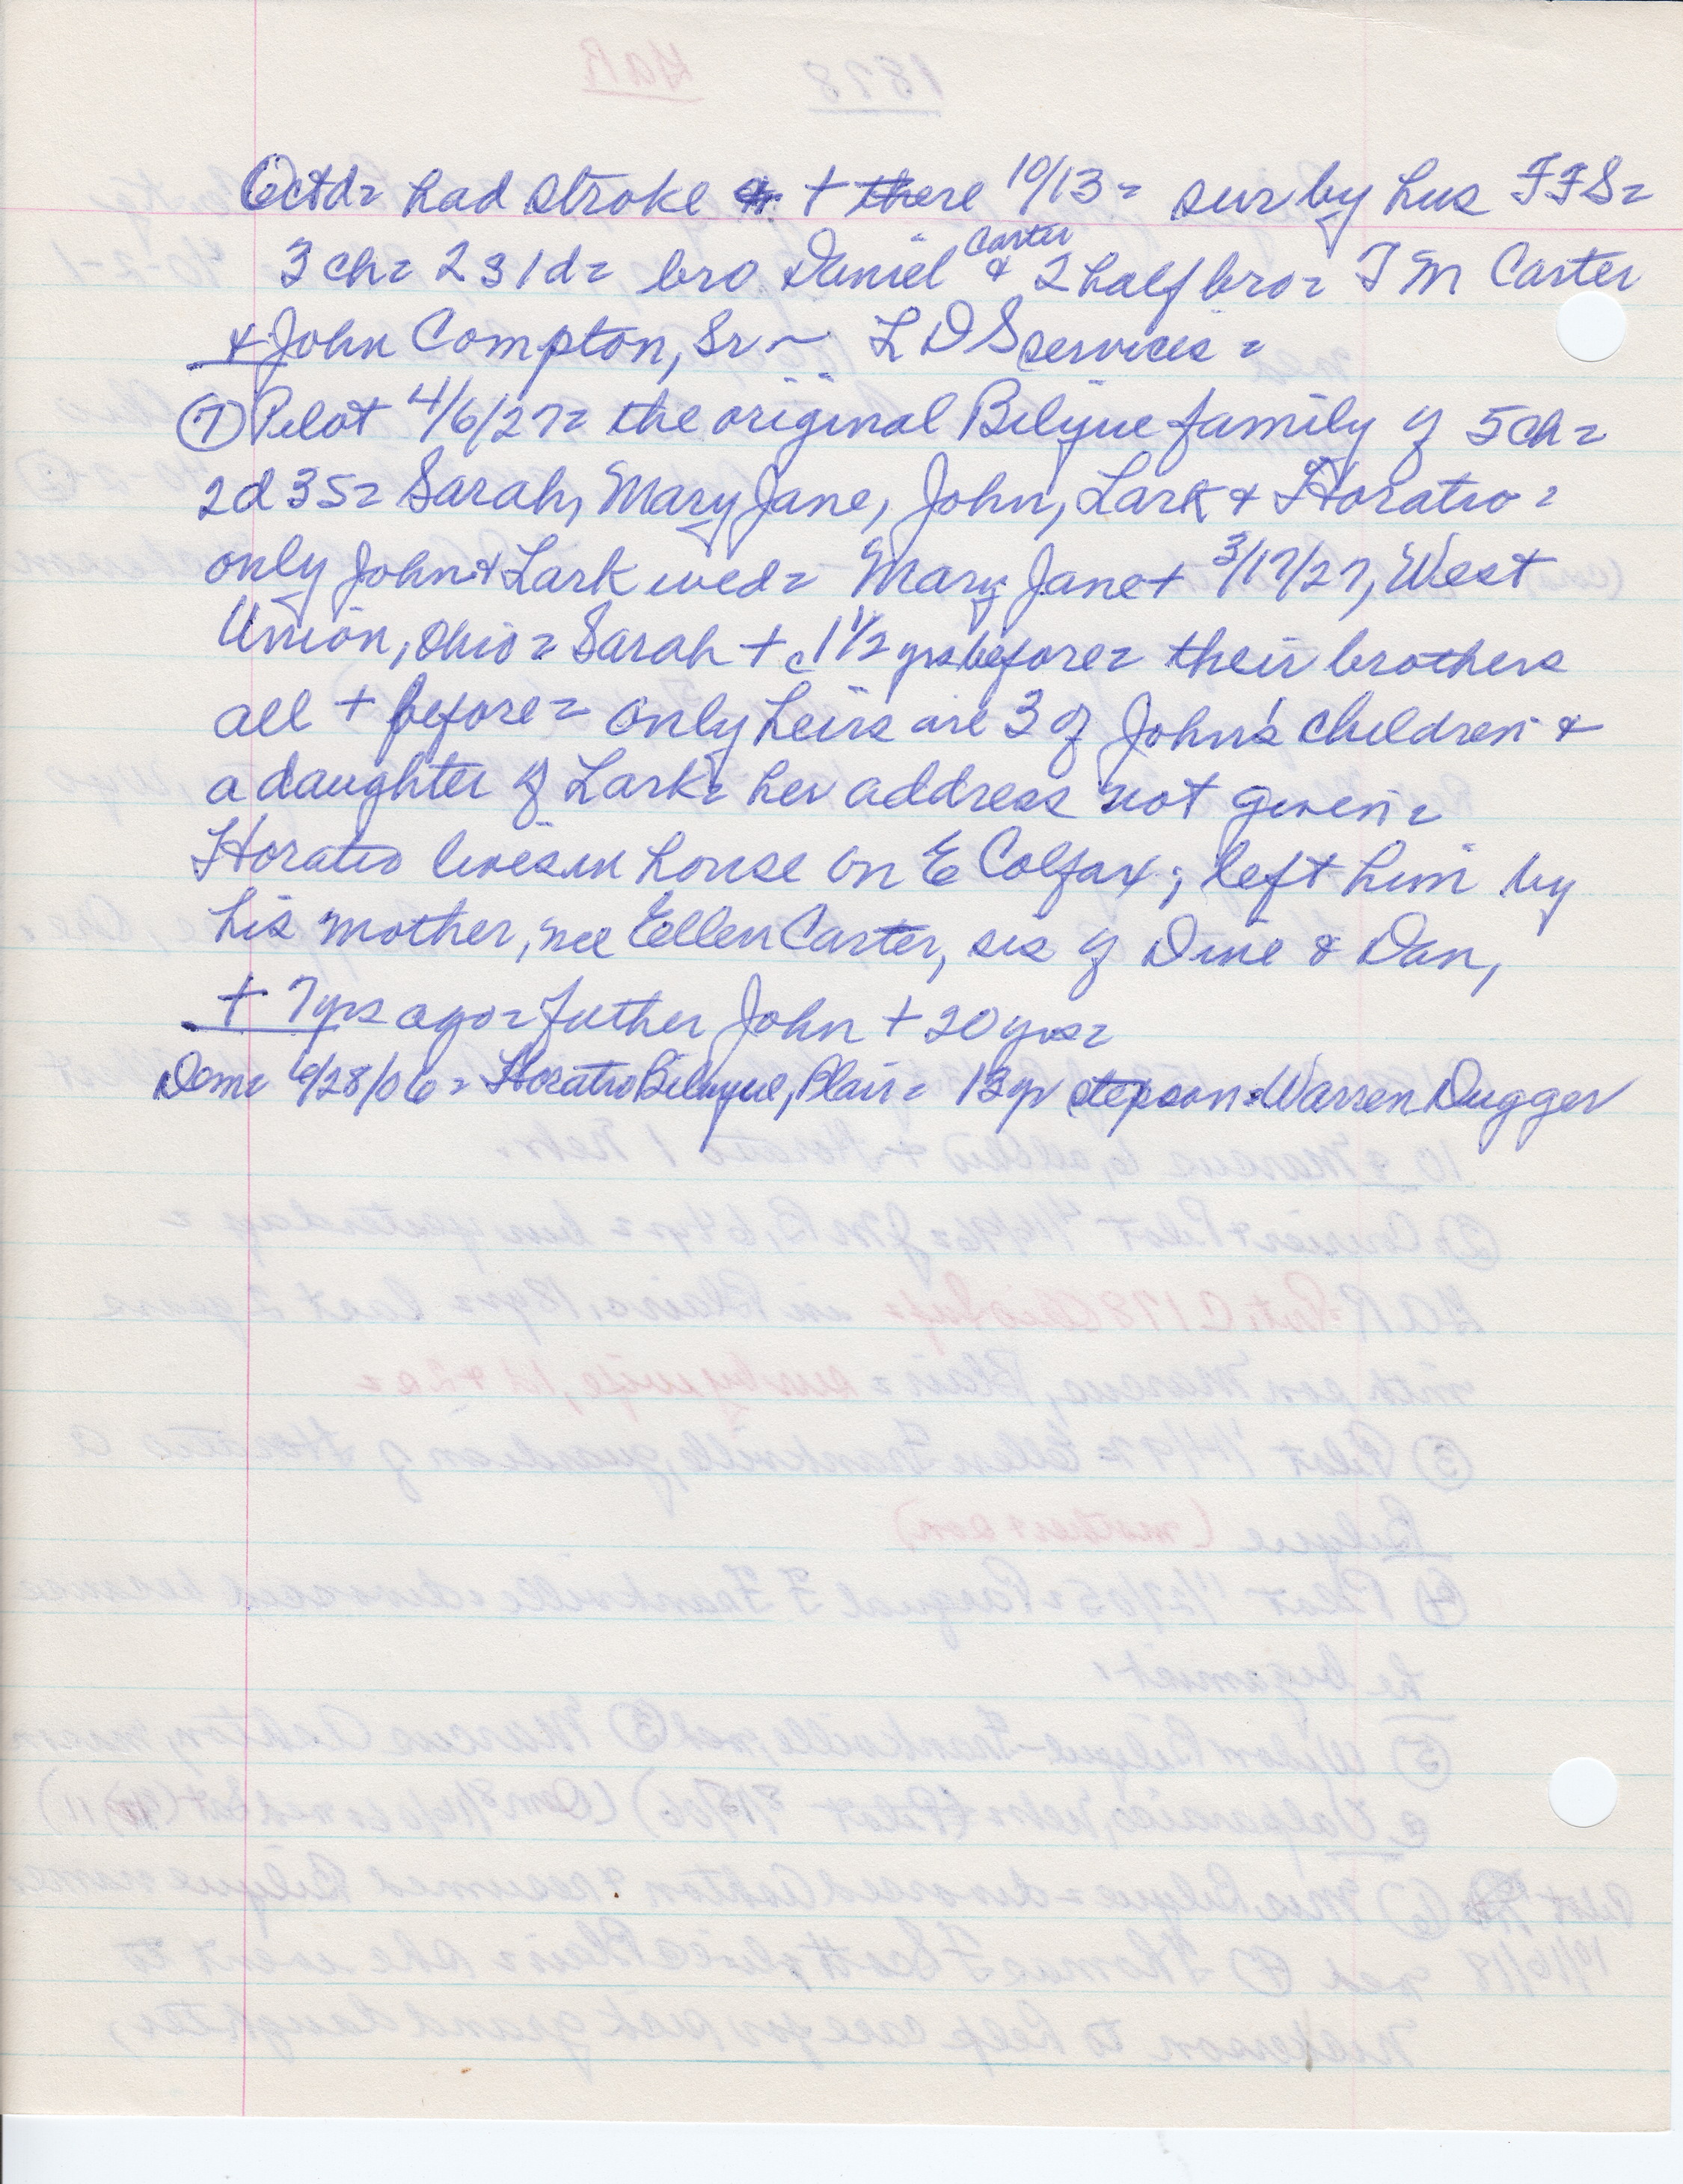 Octd= had stroke + there 10/13= sur by hus FFS=
3 ch= 2 s 1 d= bro Daniel Carter & 2 half bro= T M Carter
& John Compton, Sr ~ L D S services =
⑦ Pilot 4/6/27= the original Bilyue family of 5 ch =
2d 3S= Sarah, Mary Jane, John, Lark & Horatio =
only John & Lark wed= Mary Jane + 3/17/27, West
Union, Ohio = Sarah + c 1 1/2 yrs before= their brothers
all + before = only heirs are 3 of John's children &
a daughter of Lark= her address not given =
Horatio lives in house on E Colfax; left him by
his mother, nee Ellen Carter, sis of Dine & Dan,
+ 7 yrs ago = father John + 20 yrs=
Dem= 6/28/06 = Horatio Bilyue, Blair = 13 yr stepson = Warren Dugger